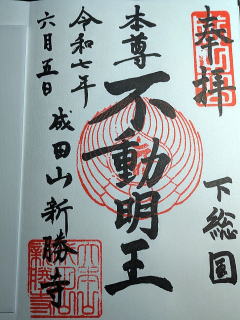 奉拝
下総国
本尊
不動明王
令和七年
六月五日
成田山新勝寺